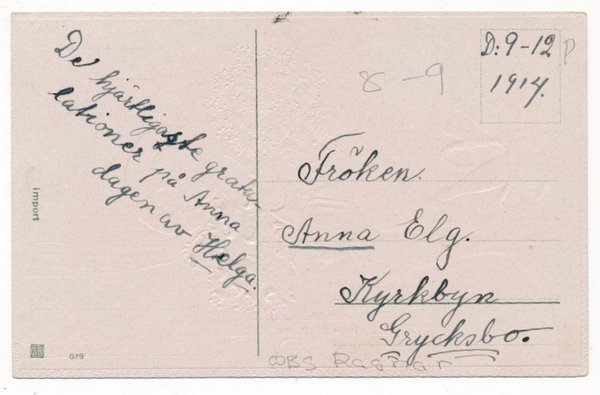 De hjärtligaste gratu-
lationer på Anna
dagen av Helga.
D: 9-12
1914.
8-9
P
Fröken.
Anna Elg.
Kyrkbyn
Grycksbo.
import
679
OBS Ragnar